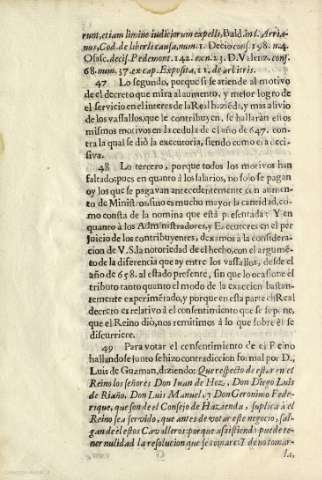 runt, etiam limine iudiciorum expelle, Bald. in l. Arria-
nus, Cod. de liberli causa, num. 1. Decio cons. 198. n. 4.
Osasc. decis. Pedemont. 142. ex n. 23. D. Valenz. cons.
68. num. 37. ex cap. Exposita, 11. de arbitris.
47 Lo segundo, porque si se atiende al motivo
de el decreto que mira al aumento, y mejor logro de
el servicio en el interes de la Real hazíẽda, y mas alivio
de los vassallos, que le contribuyen, se hallarán estos
mismos motivos en la cedula de el año de 647. con-
tra la qual se diò la executoria, siendo como era deci-
siva.
48 Lo tercero, porque todos los motivos han
faltado; pues en quanto à los salarios, no solo se pagan
oy los que se pagavan antecedentemente con aumen-
to de Ministros, sino es mucho mayor la cantidad, co-
mo consta de la nomina que està presentada: Y en
quanto à los Administradores, y Executores en el per
juicio de los contribuyentes, dexamos à la considera-
cion de V.S. la notoriedad de el hecho, con el argumẽ-
to de la diferencia que ay entre los vassallos, desde el
año de 658. al estado presente, sin que lo ocasione el
tributo tanto quanto el modo de la exaccion bastan-
temente experimẽtado, y porque en esta parte el Real
decreto es relativo à el consentimiento que se supone,
que el Reino dio, nos remitimos à lo que sobre èl se
discurriere.
49 Para votar el consentimiento de el Reino
hallandose junto se hizo contradiccion formal por D.
Luis de Guzman, diziendo: Que respecto de estar en el
Reino los señores Don Juan de Hoz, Don Diego Luis
de Riaño, Don Luis Manuel, y Don Geronimo Fede-
rique, que son de el Consejo de Hazienda, suplica à el
Reino sea servido, que antes de votar este negocio, sal-
gan de èl estos Cavalleros; porque assistiendo puede te-
ner nulidad la resolucion que se tomare: Y de no tomar-
la,